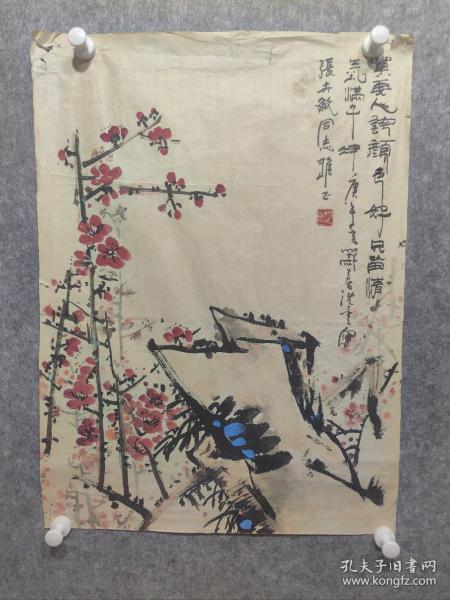 莫要人誇顏色好只留清
氣滿乾坤庚午
張卉敏同志雅正
孔夫子旧书网
www.kongfz.com